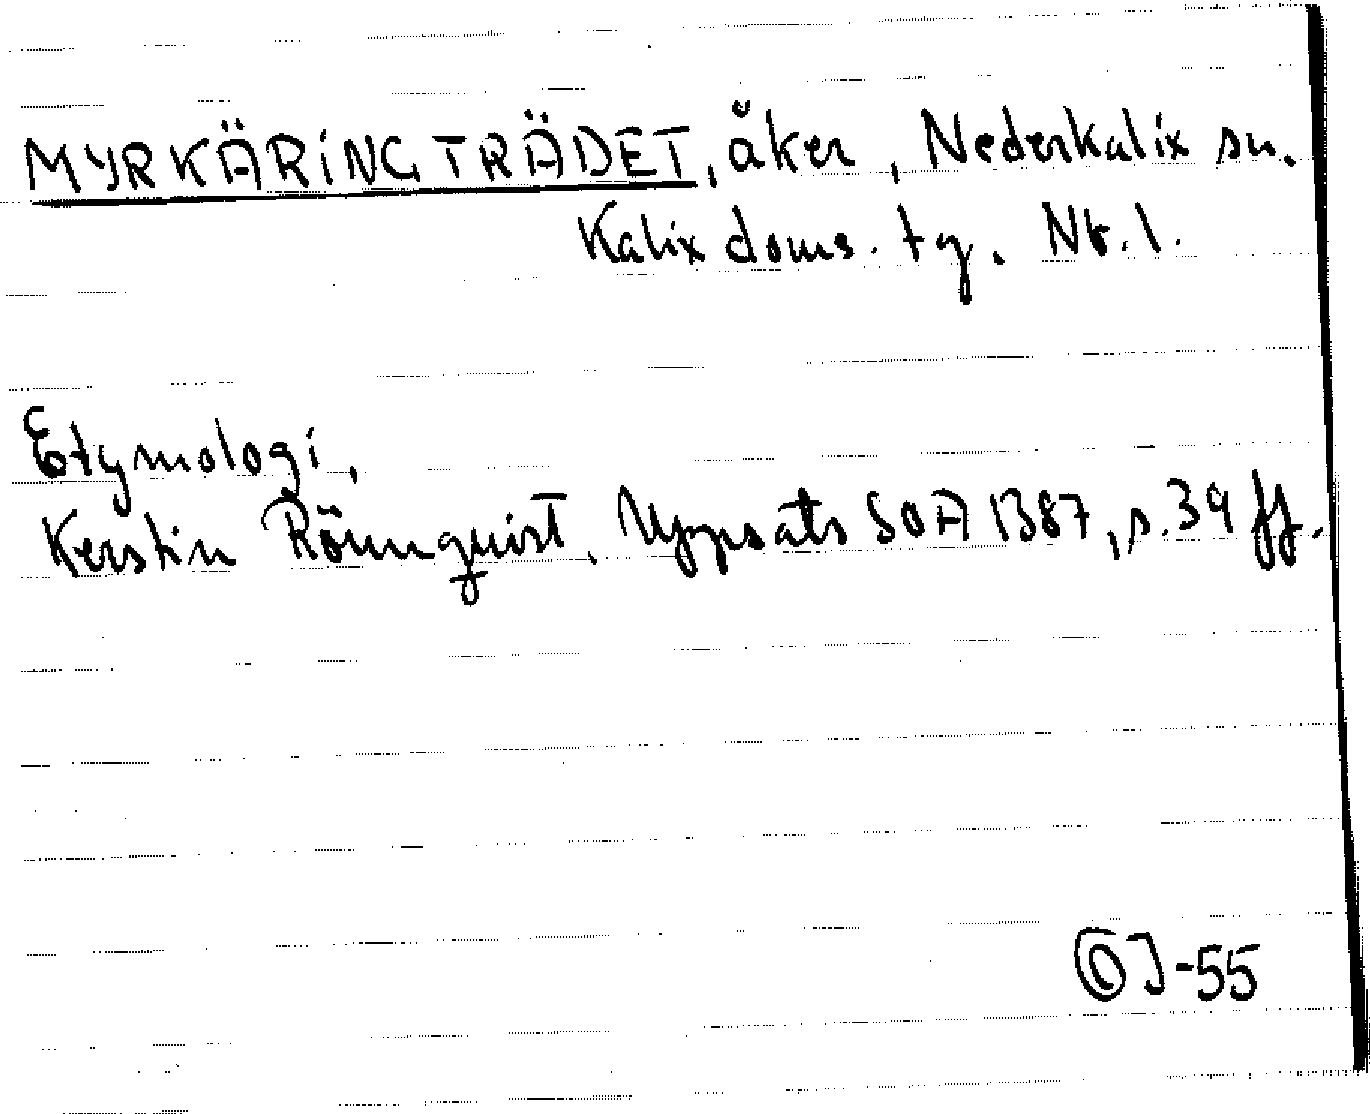 MYRKÄRINGTRÄDET, åker, Nederkalix sn.
Kalix doms. tg. Nb. l.
Etymologi,
Kerstin Rönnquist, Uppsats SOA 1387, s. 39 ff.
OJ-55